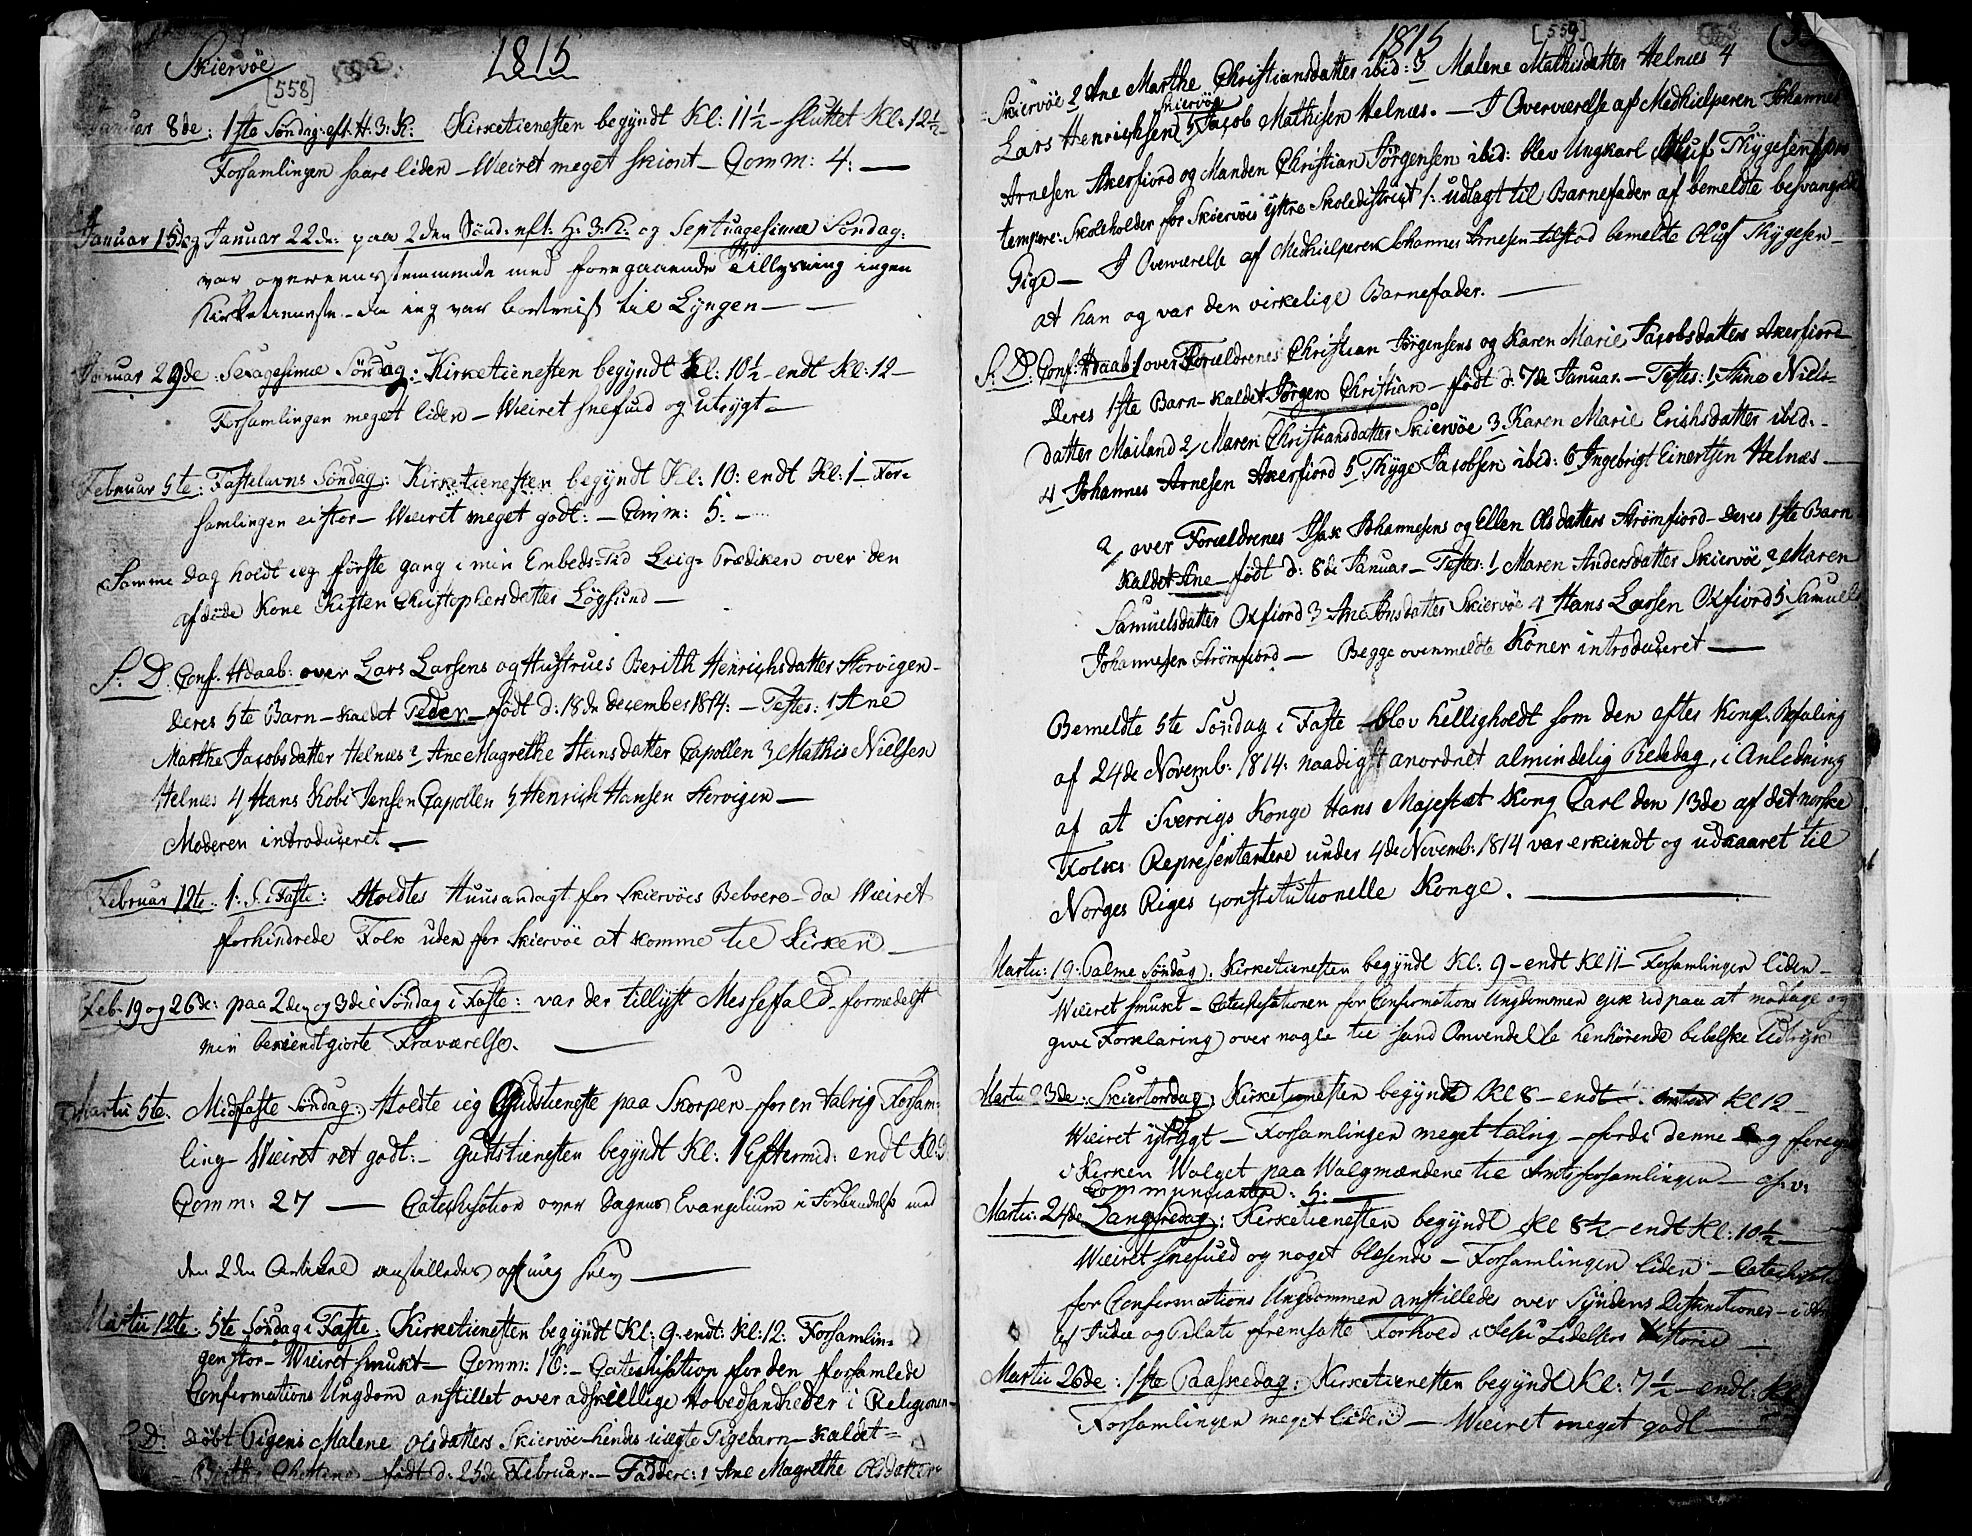 Skiervöe
[558]
1815
Januar 8de: 1ste Söndag eft. H. 3. K. Kirketienesten begyndt Kl: 11½ – sluttet Kl: 12½ –
Forsamlingen saare liden – Wæiret meget skiönt – Comm: 4: –
Januar 15de og Januar 22de: paa 2den Sönd: eft: H. 3. K: og Septuagesimæ Söndag:
var overeensstemmende med foregaaende Tillysning ingen
Kirketieneste – da ieg var bortreist til Lyngen –
Januar 29de Sexagesimæ Söndag: Kirketienesten begyndt Kl: 10½ – endt Kl: 12 –
Forsamlingen meget liden – Wæiret snefuld og utrygt –
Februar 5te: Fastelavns Söndag: Kirketienesten begyndt Kl: 10: endt Kl: 1 – For-
samlingen ei stor – Wæiret meget godt: – Comm: 5: –
Samme Dag holdt ieg förste gang i min Embeds-Tid Liig-Prædiken over den
afdöde Kone Kirsten Christophersdatter Lögsund –
S: D. Conf. Hdaab: over Lars Larsens og Hustrues Berith Henrichsdatter Storvigen –
Deres 5te Barn – kaldet Peder – född d: 18de December 1814: – Testes: 1 Ane
Marthe Jacobsdatter Helnæs 2 Ane Magrethe Hansdatter Capollen 3 Mathis Nielsen
Helnæs 4 Hans Kobi Jensen Capollen 5 Henrich Hansen Storvigen –
Moderen introduceret –
Februar 12te: 1: S. i Faste: Holdtes Huusandagt for Skiervöes Beboere – da Wæiret
forhindrede Folk uden for Skiervöe at komme til Kirken –
Feb. 19 og 26de: paa 2den og 3die Söndag i Faste: var der tillyst Messefald – formedelst
min bekiendtgiorte Fraværelse. –
Martii 5te. Midfaste Söndag: Holdte ieg Gudstieneste paa Skorpen – for en talrig Forsam-
ling – Wæiret ret godt: – Gudstienesten begyndt Kl: 1 Eftermid: endt Kl: 3
Comm: 27 – Catechisation over Dagens Evangelium i Forbindelse med
den 2den Artikel anstilledes af mig selv –
Martii 12te: 5te Söndag i Faste: Kirketienesten begyndt Kl: 9 – endt: Kl: 12: Forsamlin-
gen stor – Wæiret smukt – Comm: 16: – Catechisation for den forsamlede
Confirmations Ungdom anstillet over adskillige Hovedsandheder i Religionen –
S: D: Döbt Pigens Malene Olsdatters Skiervöe – hendes uægte Pigebarn – kaldet =
födt d: 25de Februar. – Faddere: 1 Ane Magrethe Olsdatter
1815
[559]
Skiervöe 2 Ane Marthe Christiansdatter ibid: 3 Malene Mathisdatter Helnæs 4
Lars Henrichsen Skiervöe 5 Jacob Mathisen Helnæs. – I Overværelse af Medhielperen Johannes
Arnesen Akerfiord og Manden Christian Jörgensen ibid: blev Ungkarl Oluf Thygesen /: pro
tempore: Skoleholder for Skiervöes yttre Skoledistrigt /: udlagt til Barnefader af bemeldte besvangrede
Pige – I Overværelse af Medhielperen Johannes Arnesen tilstod bemeldte Oluf Thygesen –
at han og var den virkelige Barnefader. –
S: D: Conf: Hdaab: 1 over Forældrenes Christian Jörgensens og Karen Marie Jacobsdatters Akerfiord
Deres 1ste Barn – kaldet Jörgen Christian – födt d: 7de Januar. – Testes: 1 Stine Niels-
datter Mailand 2 Maren Christiansdatter Skiervöe 3 Karen Marie Erichsdatter ibid: –
4 Johannes Arnesen Akerfiord 5 Thyge Jacobsen ibid: 6 Ingebrigt Einertsen Helnæs –
2 over Forældrenes Isak Johannesens og Ellen Olsdatters Strömfiord – Deres 1ste Barn
kaldet Ane – födt d: 8de Januar – Testes: 1 Maren Andersdatter Skiervöe 2 Maren
Samuelsdatter Oxfiord 3 Ane Jonsdatter Skiervöe 4 Hans Larsen Oxfiord 5 Samuel
Johannesen Strömfiord – Begge ovenmeldte Koner introduceret –
Bemeldte 5te Söndag i Faste blev helligholdt som den efter Kongl: Befaling
af 24de Novemb: 1814: naadigst anordnet almindelig Bededag, i Anledning
af at Sverrigs Konge Hans Majestæt Kong Carl den 13de af det norske
Folks Repræsentantere under 4de Novemb: 1814 var erkiendt og udkaaret til
Norges Riges constitutionelle Konge. –
Martii: 19: Palme Söndag: Kirketienesten begyndt Kl: 9 – endt Kl 11 – Forsamlingen liden –
Wæiret smukt – Catechisationen for Confirmations Ungdommen gik ud paa at modtage og
give Forklaring over nogle til sand Omvendelse henhörende bibelske Udtryk
Martii 23de: Skiertorsdag: Kirketienesten begyndt Kl 8 – endt Kl 12 –
Wæiret ytrygt – Forsamlingen meget talrig – fordi denne Dag foregik
i Kirken Walget paa Walgmændene til Amtsforsamlingen –
Communicantere: 5: –
Martii: 24de Langfredag: Kirketienesten begyndt Kl 8½ – endt Kl: 10½ –
Wæiret snefuld og noget blæsende – Forsamlingen liden – Catechisation
for Confirmations Ungdommen anstilledes over Syndens Distinctioner –
af Judæ og Pilati fremsatte Forhold i Jesu Lidelses Historie –
Martii 26de: 1ste Paaskedag: Kirketienesten begyndt Kl: 7½ – endt: Kl
Forsamlingen meget liden – Wæiret meget godt –